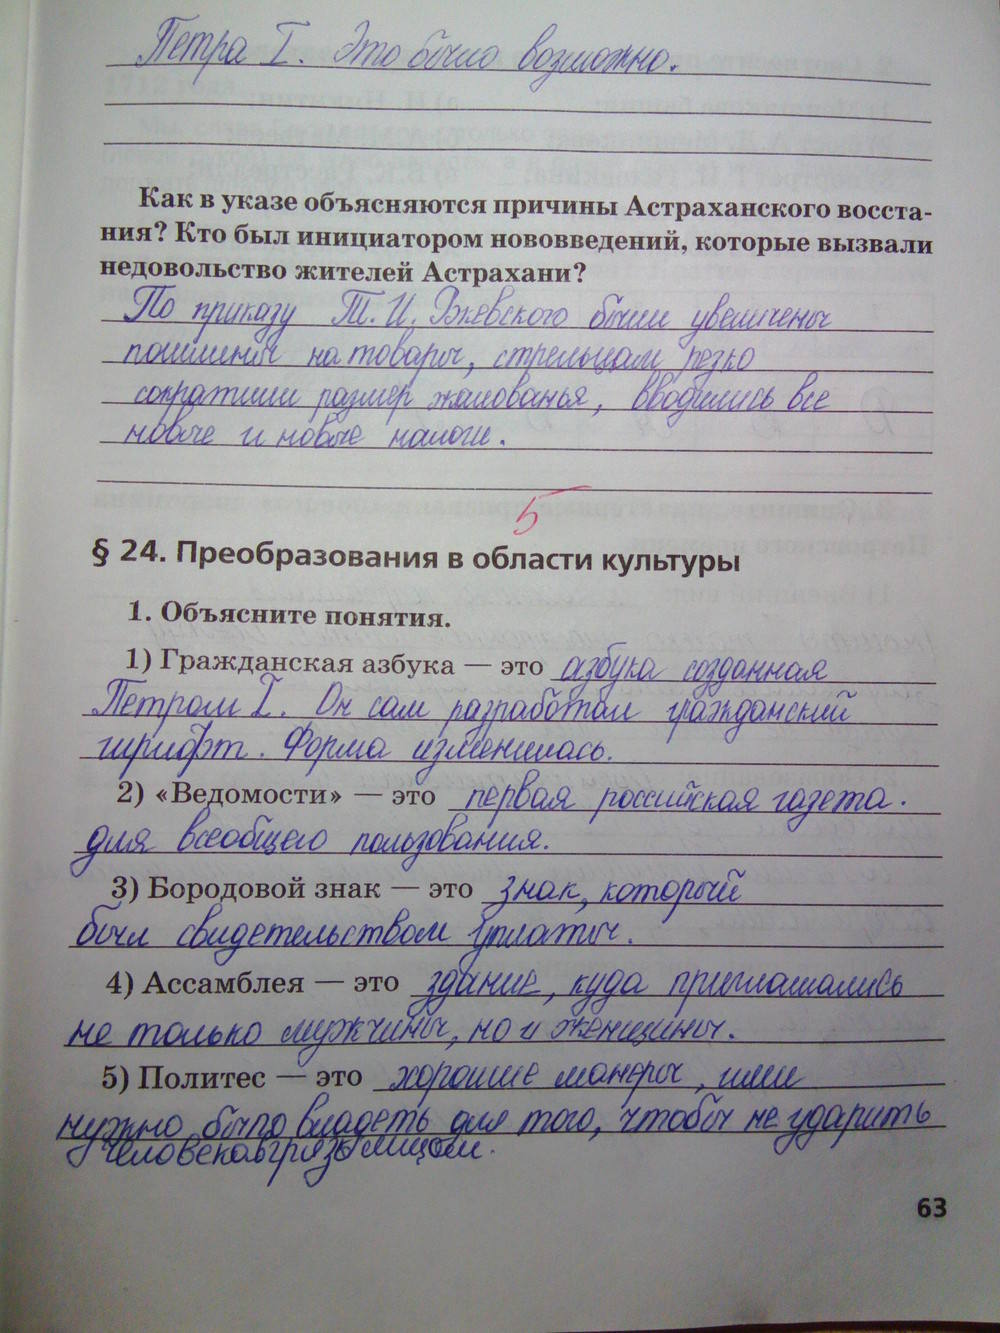 Петра I. Это было возможно.
Как в указе объясняются причины Астраханского восста-
ния? Кто был инициатором нововведений, которые вызвали
недовольство жителей Астрахани?
По приказу Т.И. Ржевского были увеличены
пошлины на товары, стрельцам резко
сократили размер жалованья, вводились все
новые и новые налоги.
5
§ 24. Преобразования в области культуры
1. Объясните понятия.
1) Гражданская азбука — это азбука созданная
Петром I. Он сам разработал гражданский
шрифт. Форма изменилась.
2) «Ведомости» — это первая российская газета.
для всеобщего пользования.
3) Бородовой знак — это знак, который
был свидетельством уплаты.
4) Ассамблея — это здание, куда приглашались
не только мужчины, но и женщины.
5) Политес — это хорошие манеры, ими
нужно было владеть для того, чтобы не ударить
человека в грязь лицом.
63